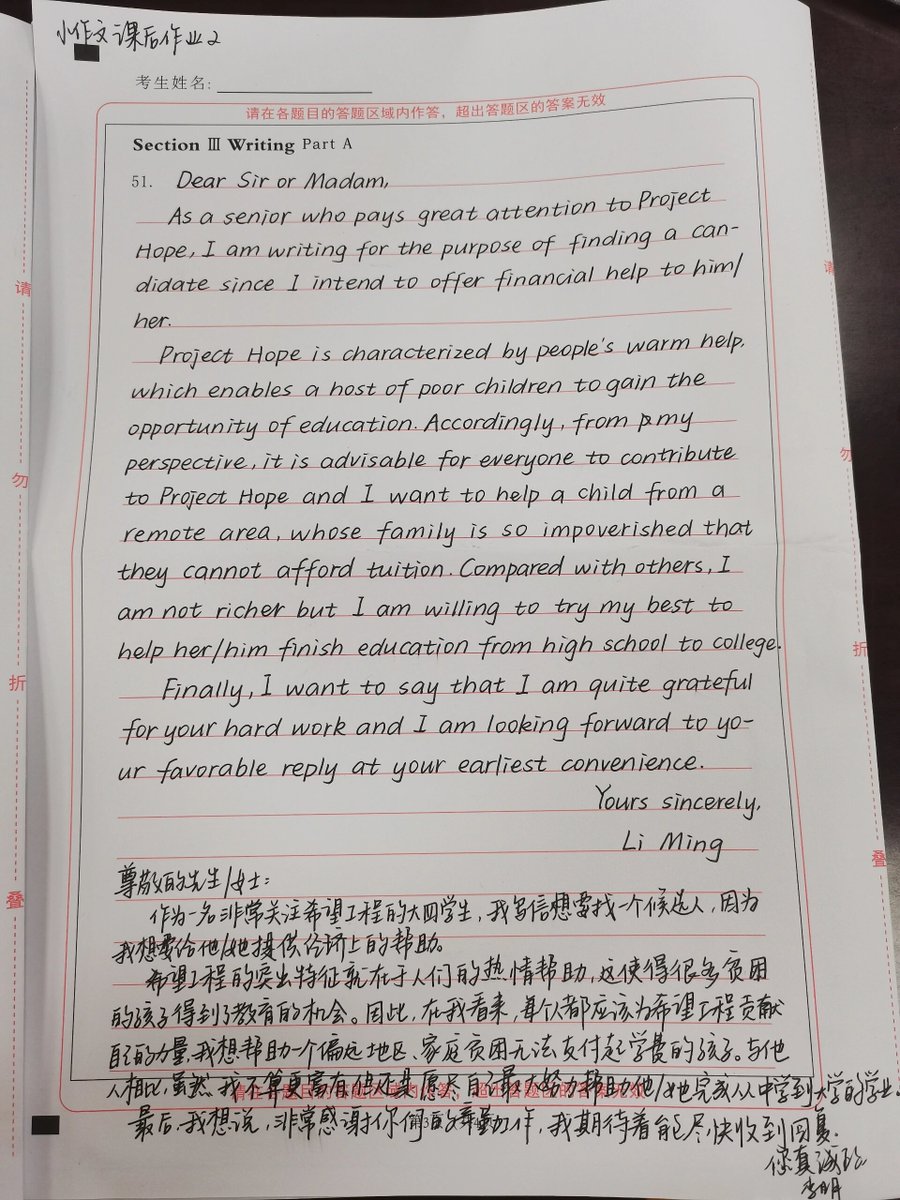 小作文课后作业2
考生姓名:
请在各题目的答题区域内作答，超出答题区的答案无效
Section Ⅲ Writing Part A
51. Dear Sir or Madam,
As a senior who pays great attention to Project
Hope, I am writing for the purpose of finding a can-
didate since I intend to offer financial help to him/
her.
Project Hope is characterized by people's warm help,
which enables a host of poor children to gain the
opportunity of education. Accordingly, from my
perspective, it is advisable for everyone to contribute
to Project Hope and I want to help a child from a
remote area, whose family is so impoverished that
they cannot afford tuition. Compared with others, I
am not richer but I am willing to try my best to
help her/him finish education from high school to college.
Finally, I want to say that I am quite grateful
for your hard work and I am looking forward to yo-
ur favorable reply at your earliest convenience.
Yours sincerely,
Li Ming
尊敬的先生/女士：
作为一名非常关注希望工程的大四学生，我写信想要找一个候选人，因为
我想要给他/她提供经济上的帮助。
希望工程的突出特征就在于人们的热情帮助，这使得很多贫困
的孩子得到了教育的机会。因此，在我看来，每个人都应该为希望工程贡献
自己的力量，我想帮助一个偏远地区、家庭贫困无法支付起学费的孩子。与他
人相比，虽然我不算更富有，但还是愿尽自己最大努力帮助他/她完成从中学到大学的学业。
请在各题目的答题区域内作答，超出答题区的答案无效
最后，我想说，非常感谢你们的辛勤工作，我期待着能尽快收到回复。
您真诚的
李明
请
勿
折
叠
请
勿
折
叠